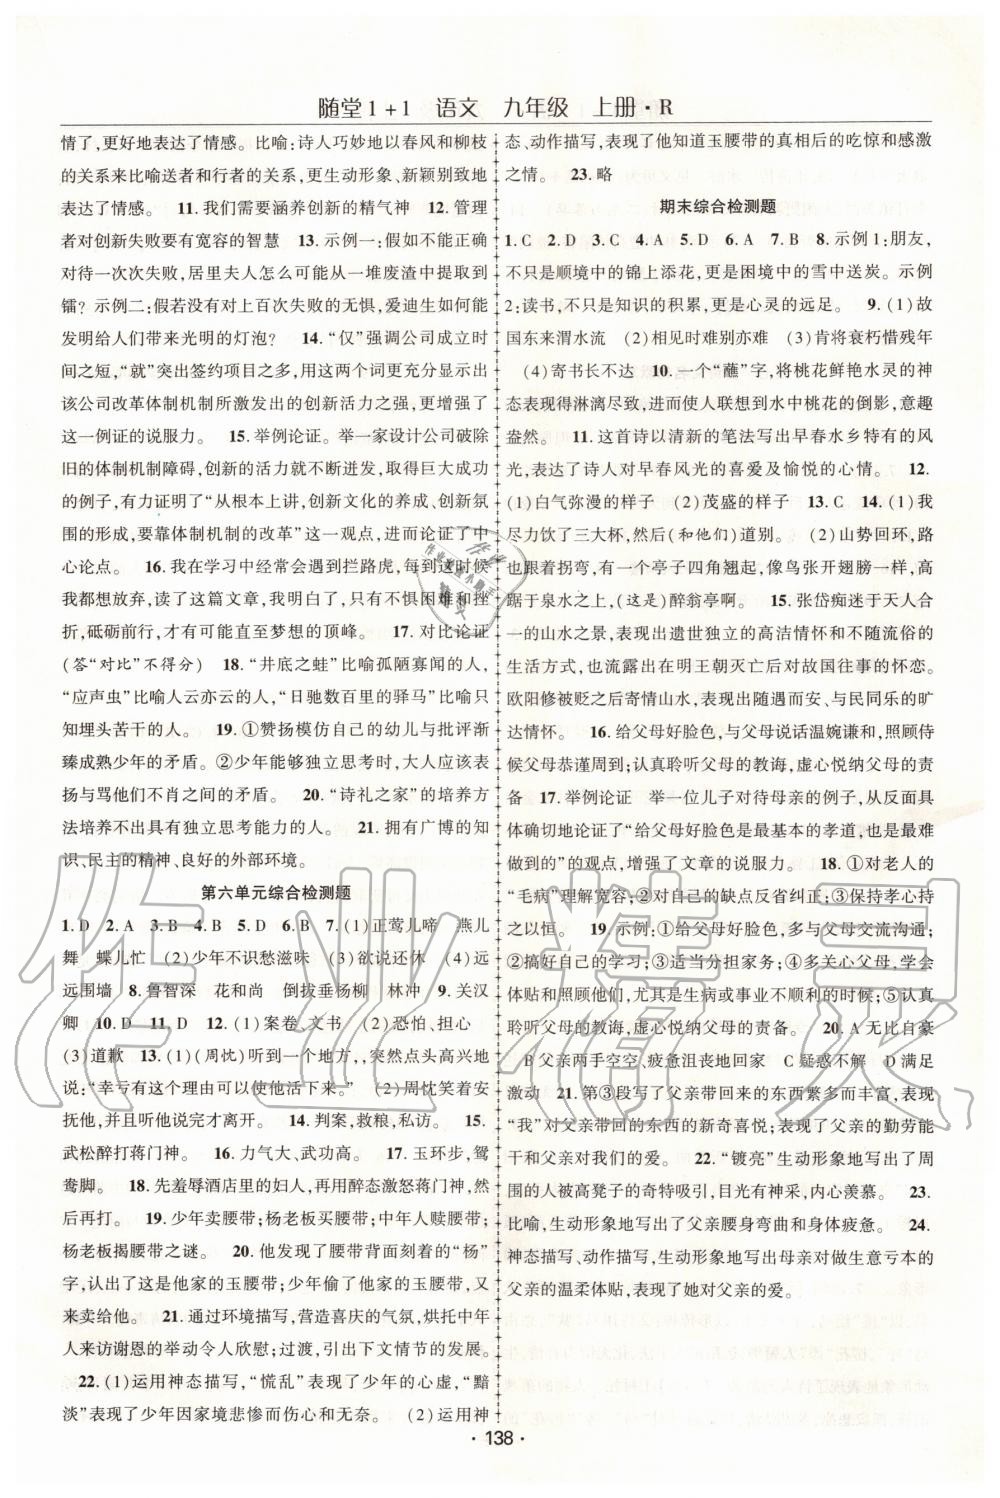 随堂1+1 语文 九年级 上册·R
情了,更好地表达了情感。比喻:诗人巧妙地以春风和柳枝
的关系来比喻送者和行者的关系,更生动形象、新颖别致地
表达了情感。 11. 我们需要涵养创新的精气神 12. 管理
者对创新失败要有宽容的智慧 13. 示例一:假如不能正确
对待一次次失败,居里夫人怎能够从一堆废渣中提取到
镭? 示例二:假若没有对上百次失败的无惧,爱迪生如何能
发明给人们带来光明的灯泡? 14. “仅”强调公司成立时
间之短,“就”突出签约项目之多,两个词更充分体现出
该公司改革体制机制所激发出的创新活力之强,更增强了
这一例证的说服力。 15. 举例论证。举一家设计公司破除
旧的体制机制障碍,创新的活力就不断迸发,取得巨大成功
的例子,有力证明了“从根本上讲,创新文化的养成,创新氛
围的形成,要靠体制机制的改革”这一观点,进而论证了中
心论点。 16. 我在学习中经常会遇到拦路虎,每到这时候
我都想放弃,读了这篇文章,我懂得了只有不惧困难和挫
折,砥砺前行,才有可能直至梦想的顶峰。 17. 对比论证
(答“对比”不得分) 18. “井底之蛙”比喻孤陋寡闻的人,
“应声虫”比喻人云亦云的人,“日驰数百里的驿马”比喻只
知埋头苦干的人。 19. ①赞扬模仿自己的幼儿与批评渐
臻成熟少年的矛盾。②少年能够独立思考时,大人应该表
扬与骂他们不肖之间的矛盾。 20. “诗礼之家”的培养方
法培养不出具有独立思考能力的人。 21. 拥有广博的知
识、民主的精神、良好的外部环境。
第六单元综合检测题
1. D 2. A 3. B 4. B 5. D 6. B 7. (1)正莺儿啼 燕儿
舞 蝶儿忙 (2)少年不识愁滋味 (3)欲说还休 (4)远
远围墙 8. 鲁智深 花和尚 倒拔垂杨柳 林冲 9. 关汉
卿 10. D 11. D 12. (1)案卷、文书 (2)恐怕、担心
(3)道歉 13. (1)(周忱)听到一个地方,,突然点头高兴地
说:“幸亏有这个理由可以使他活下来。” (2)周忱笑着安
抚他,并且听他说完才离开。 14. 判案,救粮,私访。 15.
武松醉打蒋门神。 16. 力气大、武功高。 17. 玉环步,鸳
鸯脚。 18. 先羞辱酒店里的妇人,再用醉态激怒蒋门神,然
后再打。 19. 少年卖腰带;杨老板买腰带;中年人赎腰带;
杨老板揭腰带之谜。 20. 他发现了腰带背面刻着的“杨”
字,认出了这是他家的玉腰带;少年偷了他家的玉腰带,又
来卖给他。 21. 通过环境描写,营造喜庆的气氛,烘托中年
人来访谢恩的举动令人欣慰;引出下文情节的发展。
22. (1)运用神态描写,“慌乱”表现了少年的心虚,“黯
淡”表现了少年因家境悲惨而伤心和无奈。 (2)运用神
态、动作描写,表现了他知道玉腰带的真相后的吃惊和感激
之情。 23. 略
期末综合检测题
1. C 2. D 3. C 4. A 5. D 6. A 7. B 8. 示例1:朋友,
不只是顺境中的锦上添花,更是困境中的雪中送炭。示例
2:读书,不只是知识的积累,更是心灵的远足。 9. (1)故
国东来渭水流 (2)相见时难别亦难 (3)肯将衰朽惜残年
(4)寄书长不达 10. 一个“蘸”字,将桃花鲜艳水灵的神
态表现得淋漓尽致,进而使人联想到水中桃花的倒影,意趣
盎然。 11. 这首诗以清新的笔法写出早春水乡特有的风
光,表达了诗人对早春风光的喜爱及愉悦的心情。 12.
(1)白气弥漫的样子 (2)茂盛的样子 13. C 14. (1)我
尽力饮了三大杯,然后(和他们)道别。 (2)山势回环,路
也跟着拐弯,有一个亭子四角翘起,像鸟张开翅膀一样,高
踞于泉水之上,(这是)醉翁亭啊。 15. 张岱痴迷于天人合
一的山水之景,表现出遗世独立的高洁情怀和不随流俗的
生活方式,也流露出在明王朝灭亡后对故国往事的怀恋。
欧阳修被贬之后寄情山水,表现出随遇而安、与民同乐的旷
达情怀。 16. 给父母好脸色,与父母说话温婉谦和,周到侍
候父母恭谨周到;认真聆听父母的教诲,虚心悦纳父母的责
备 17. 举例论证 举一位儿子对待母亲的例子,从反面具
体明确地论证了“给父母好脸色是最基本的孝道,也是最难做
到的”的观点,增强了文章的说服力。 18. ①对老人的
“毛病”理解宽容;②对自己的缺点反省纠正;③保持孝心并持
之以恒。 19. 示例:①给父母好脸色,多与父母交流沟通;
②搞好自己的学习;③适当分担家务;④多关心父母,学会
体贴和照顾他们,尤其是生病或事业不顺利的时候;⑤认真
聆听父母的教诲,虚心悦纳父母的责备。 20. A 无比自豪
B 父亲两手空空,疲惫沮丧地回家 C 疑惑不解 D 满足
21. 第③段写了父亲带回来的东西繁多而丰富,表现了
“我”对父亲带回的东西的新奇喜悦;表现了父亲的勤劳能
干和父亲对我们的爱。 22. “镀亮”生动形象地写出了周
围的人被高凳子的奇特吸引,目光有神采,内心羡慕。 23.
比喻,生动形象地写出了父亲腰身弯曲和身体疲惫。 24.
神态描写、动作描写,生动形象地写出母亲对做生意亏本的
父亲的温柔体贴,表现了她对父亲的爱。
· 138 ·
作业精灵